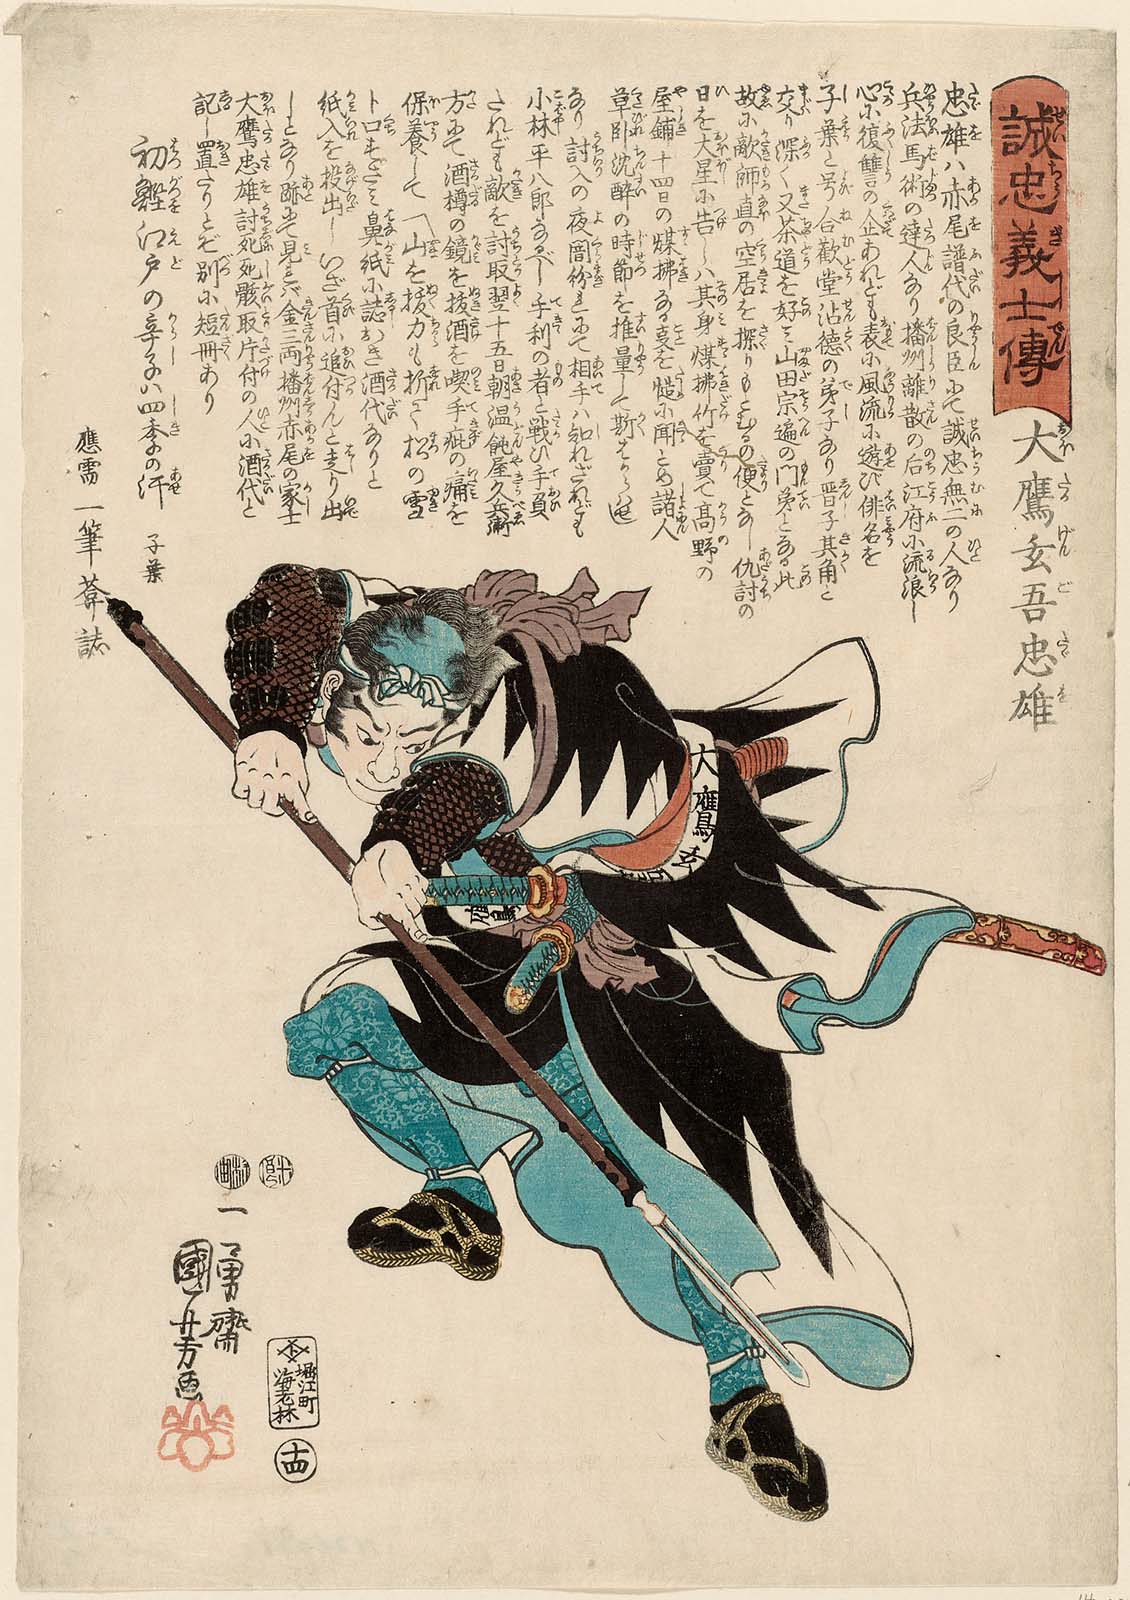 誠忠義士傳
大鷹玄吾忠雄
忠雄ハ赤尾譜代の良臣にて誠忠無二の人なり
兵法馬術の達人なり播州離散の后江府に流浪し
心に復讐の企あれども表に風流に遊び俳名を
子葉と号し合歓堂沾徳の弟子なり晋子其角と
交り深く又茶道を好ミ山田宗遍の門弟となる此
故に敵師直の空居を探りもとむるの便となし仇討の
日を大星に告しハ其身煤拂竹を賣て高野の
屋鋪十四日の煤拂なる支を慥に聞とめ諸人
草臥沈酔の時節を推量して斯はからへ
なり討入の夜闇紛にて相手ハ知れざれども
小林平八郎なるべし手利の者と戦ひ手負
されども敵を討取翌十五日朝温飩屋久兵衛
方にて酒樽の鏡を抜酒を喫手疵の痛を
保養して 山を抜力も折て松の雪
ト口ずさミ鼻紙に誌おき酒代なりと
紙入を投出しいざ首に追付んと走り出
しとなり跡にて見れバ金三両播州赤尾の家士
大鷹忠雄討死死骸取片付の人に酒代と
記し置たりとぞ別に短冊あり
初鰹江戸の辛子ハ四季の汗
子葉
應需 一筆葊誌
大鷹玄
一勇齋
國芳画
堀江町
海老林
十四